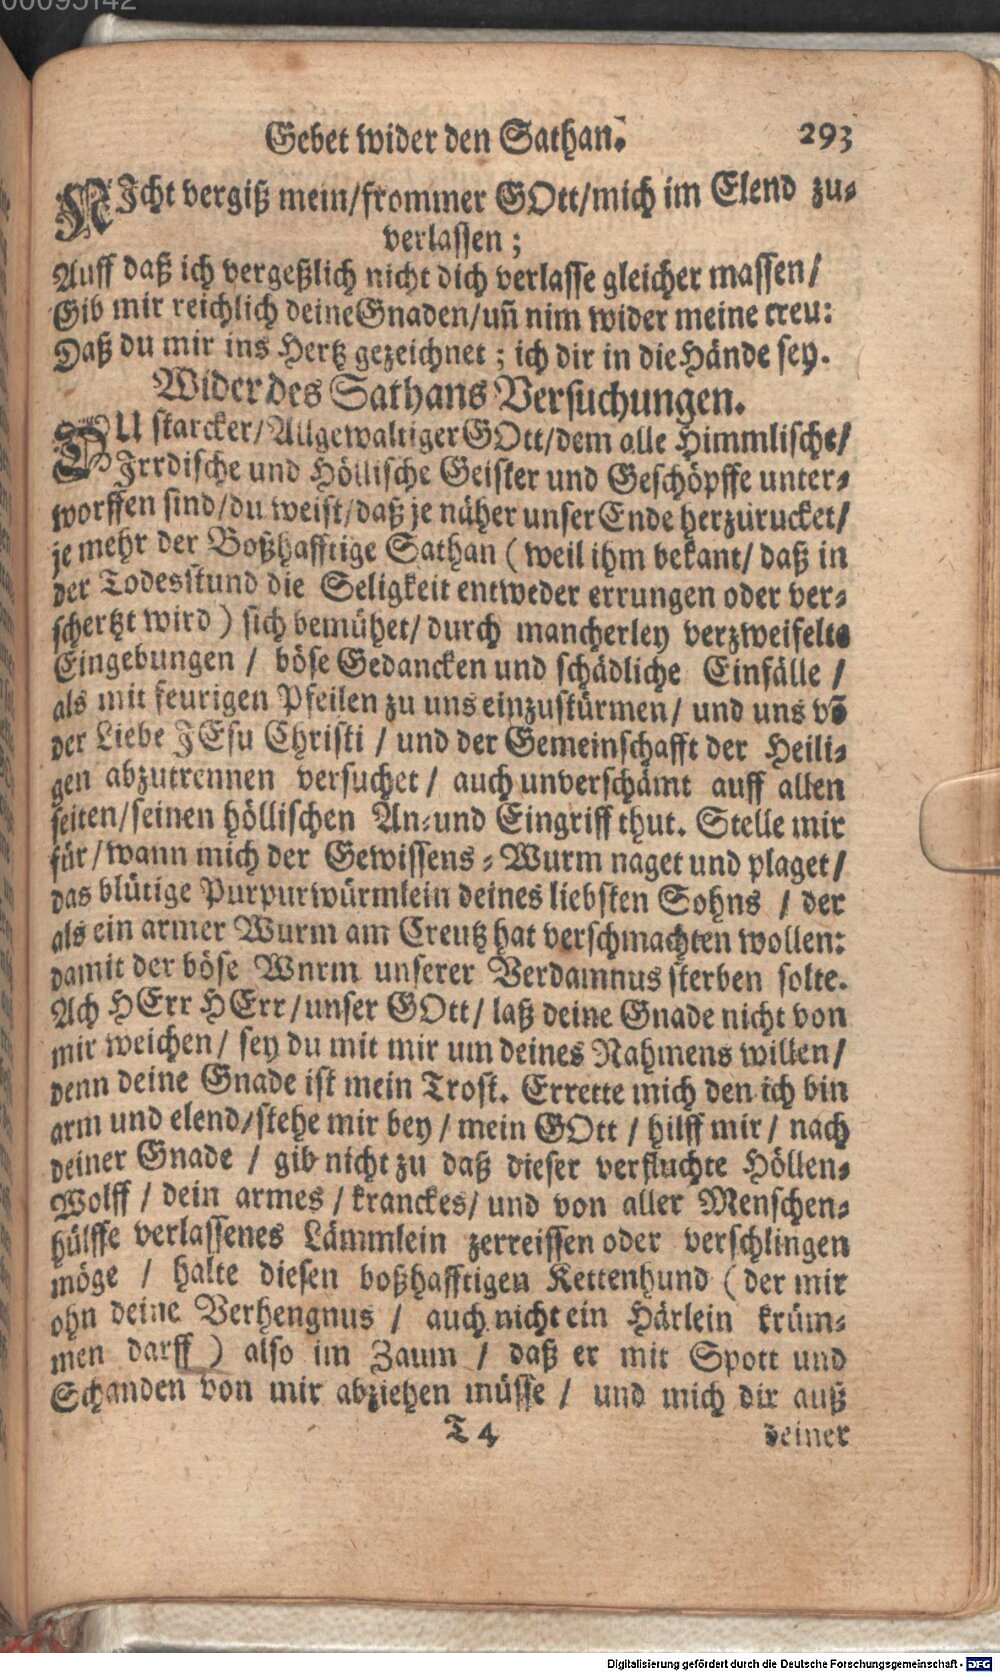 00095142
Gebet wider den Sathan. 293
NIcht vergiß mein/frommer GOtt/mich im Elend zu-
verlassen;
Auff daß ich vergeßlich nicht dich verlasse gleicher massen/
Gib mir reichlich deine Gnaden/uñ nim wider meine treu:
Daß du mir ins Hertz gezeichnet; ich dir in die Hände sey.
Wider des Sathans Versuchungen.
DU starcker/Allgewaltiger GOtt/dem alle Himmlische/
Irrdische und Höllische Geister und Geschöpffe unter-
worffen sind/du weist/daß je näher unser Ende herzurucket/
je mehr der Boßhafftige Sathan (weil ihm bekant/daß in
der Todesstund die Seligkeit entweder errungen oder ver-
schertzt wird) sich bemühet/durch mancherley verzweifelte
Eingebungen/böse Gedancken und schädliche Einfälle/
als mit feurigen Pfeilen zu uns einzustürmen/und uns võ
der Liebe JEsu Christi/und der Gemeinschafft der Heili-
gen abzutrennen versuchet/auch unverschämt auff allen
seiten/seinen höllischen An-und Eingriff thut. Stelle mir
für/wann mich der Gewissens-Wurm naget und plaget/
das blütige Purpurwürmlein deines liebsten Sohns/der
als ein armer Wurm am Creutz hat verschmachten wollen:
damit der böse Wnrm unserer Verdamnus sterben solte.
Ach HErr HErr/unser GOtt/laß deine Gnade nicht von
mir weichen/sey du mit mir um deines Nahmens willen/
denn deine Gnade ist mein Trost. Errette mich den ich bin
arm und elend/stehe mir bey/mein GOtt/hilff mir/nach
deiner Gnade/gib nicht zu daß dieser verfluchte Höllen-
Wolff/dein armes/kranckes/und von aller Menschen-
hülffe verlassenes Lämmlein zerreissen oder verschlingen
möge/halte diesen boßhafftigen Kettenhund (der mir
ohn deine Verhengnus/auch nicht ein Härlein krüm-
men darff) also im Zaum/daß er mit Spott und
Schanden von mir abziehen müsse/und mich dir auß
T 4 deiner
Digitalisierung gefördert durch die Deutsche Forschungsgemeinschaft - DFG